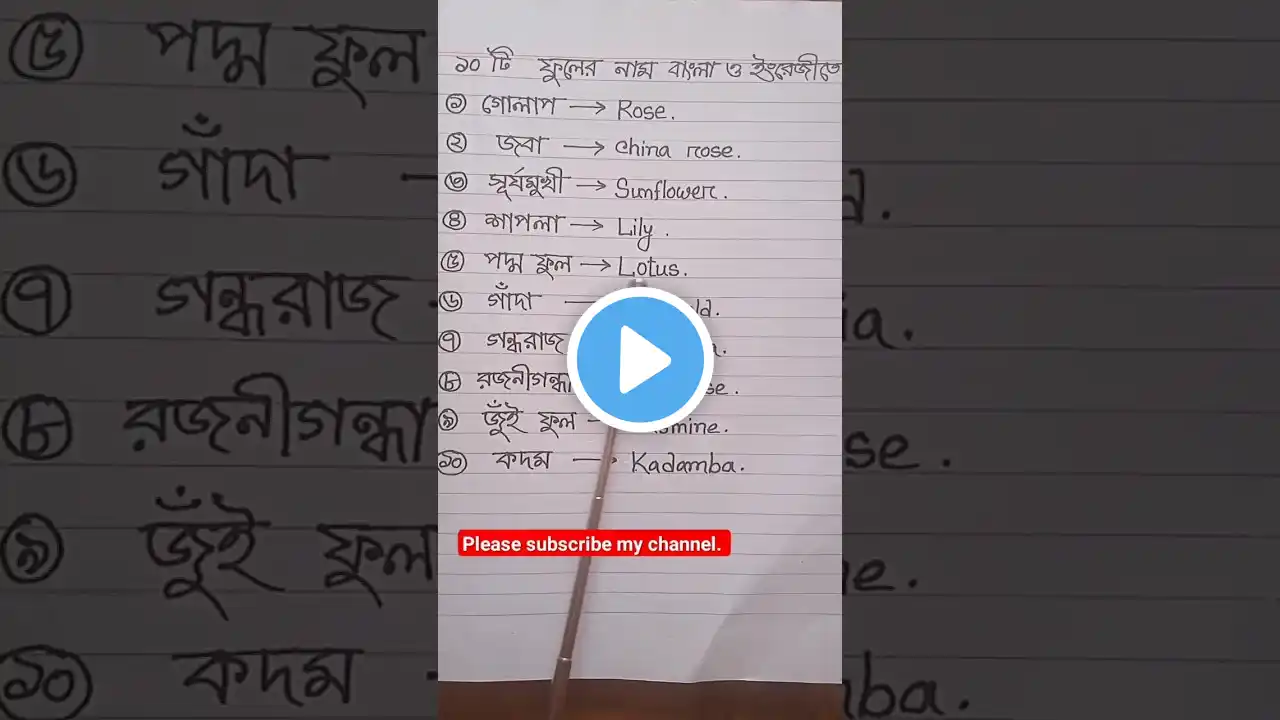 ১০ টি ফুলের নাম বাংলা ও ইংরেজীতে
১ গোলাপ → Rose.
২ জবা → China rose.
৩ সূর্যমুখী → Sunflower.
৪ শাপলা → Lily.
৫ পদ্ম ফুল → Lotus.
৬ গাঁদা
৭ গন্ধরাজ
৮ রজনীগন্ধা
৯ জুঁই ফুল
১০ কদম → Kadamba.
Please subscribe my channel.